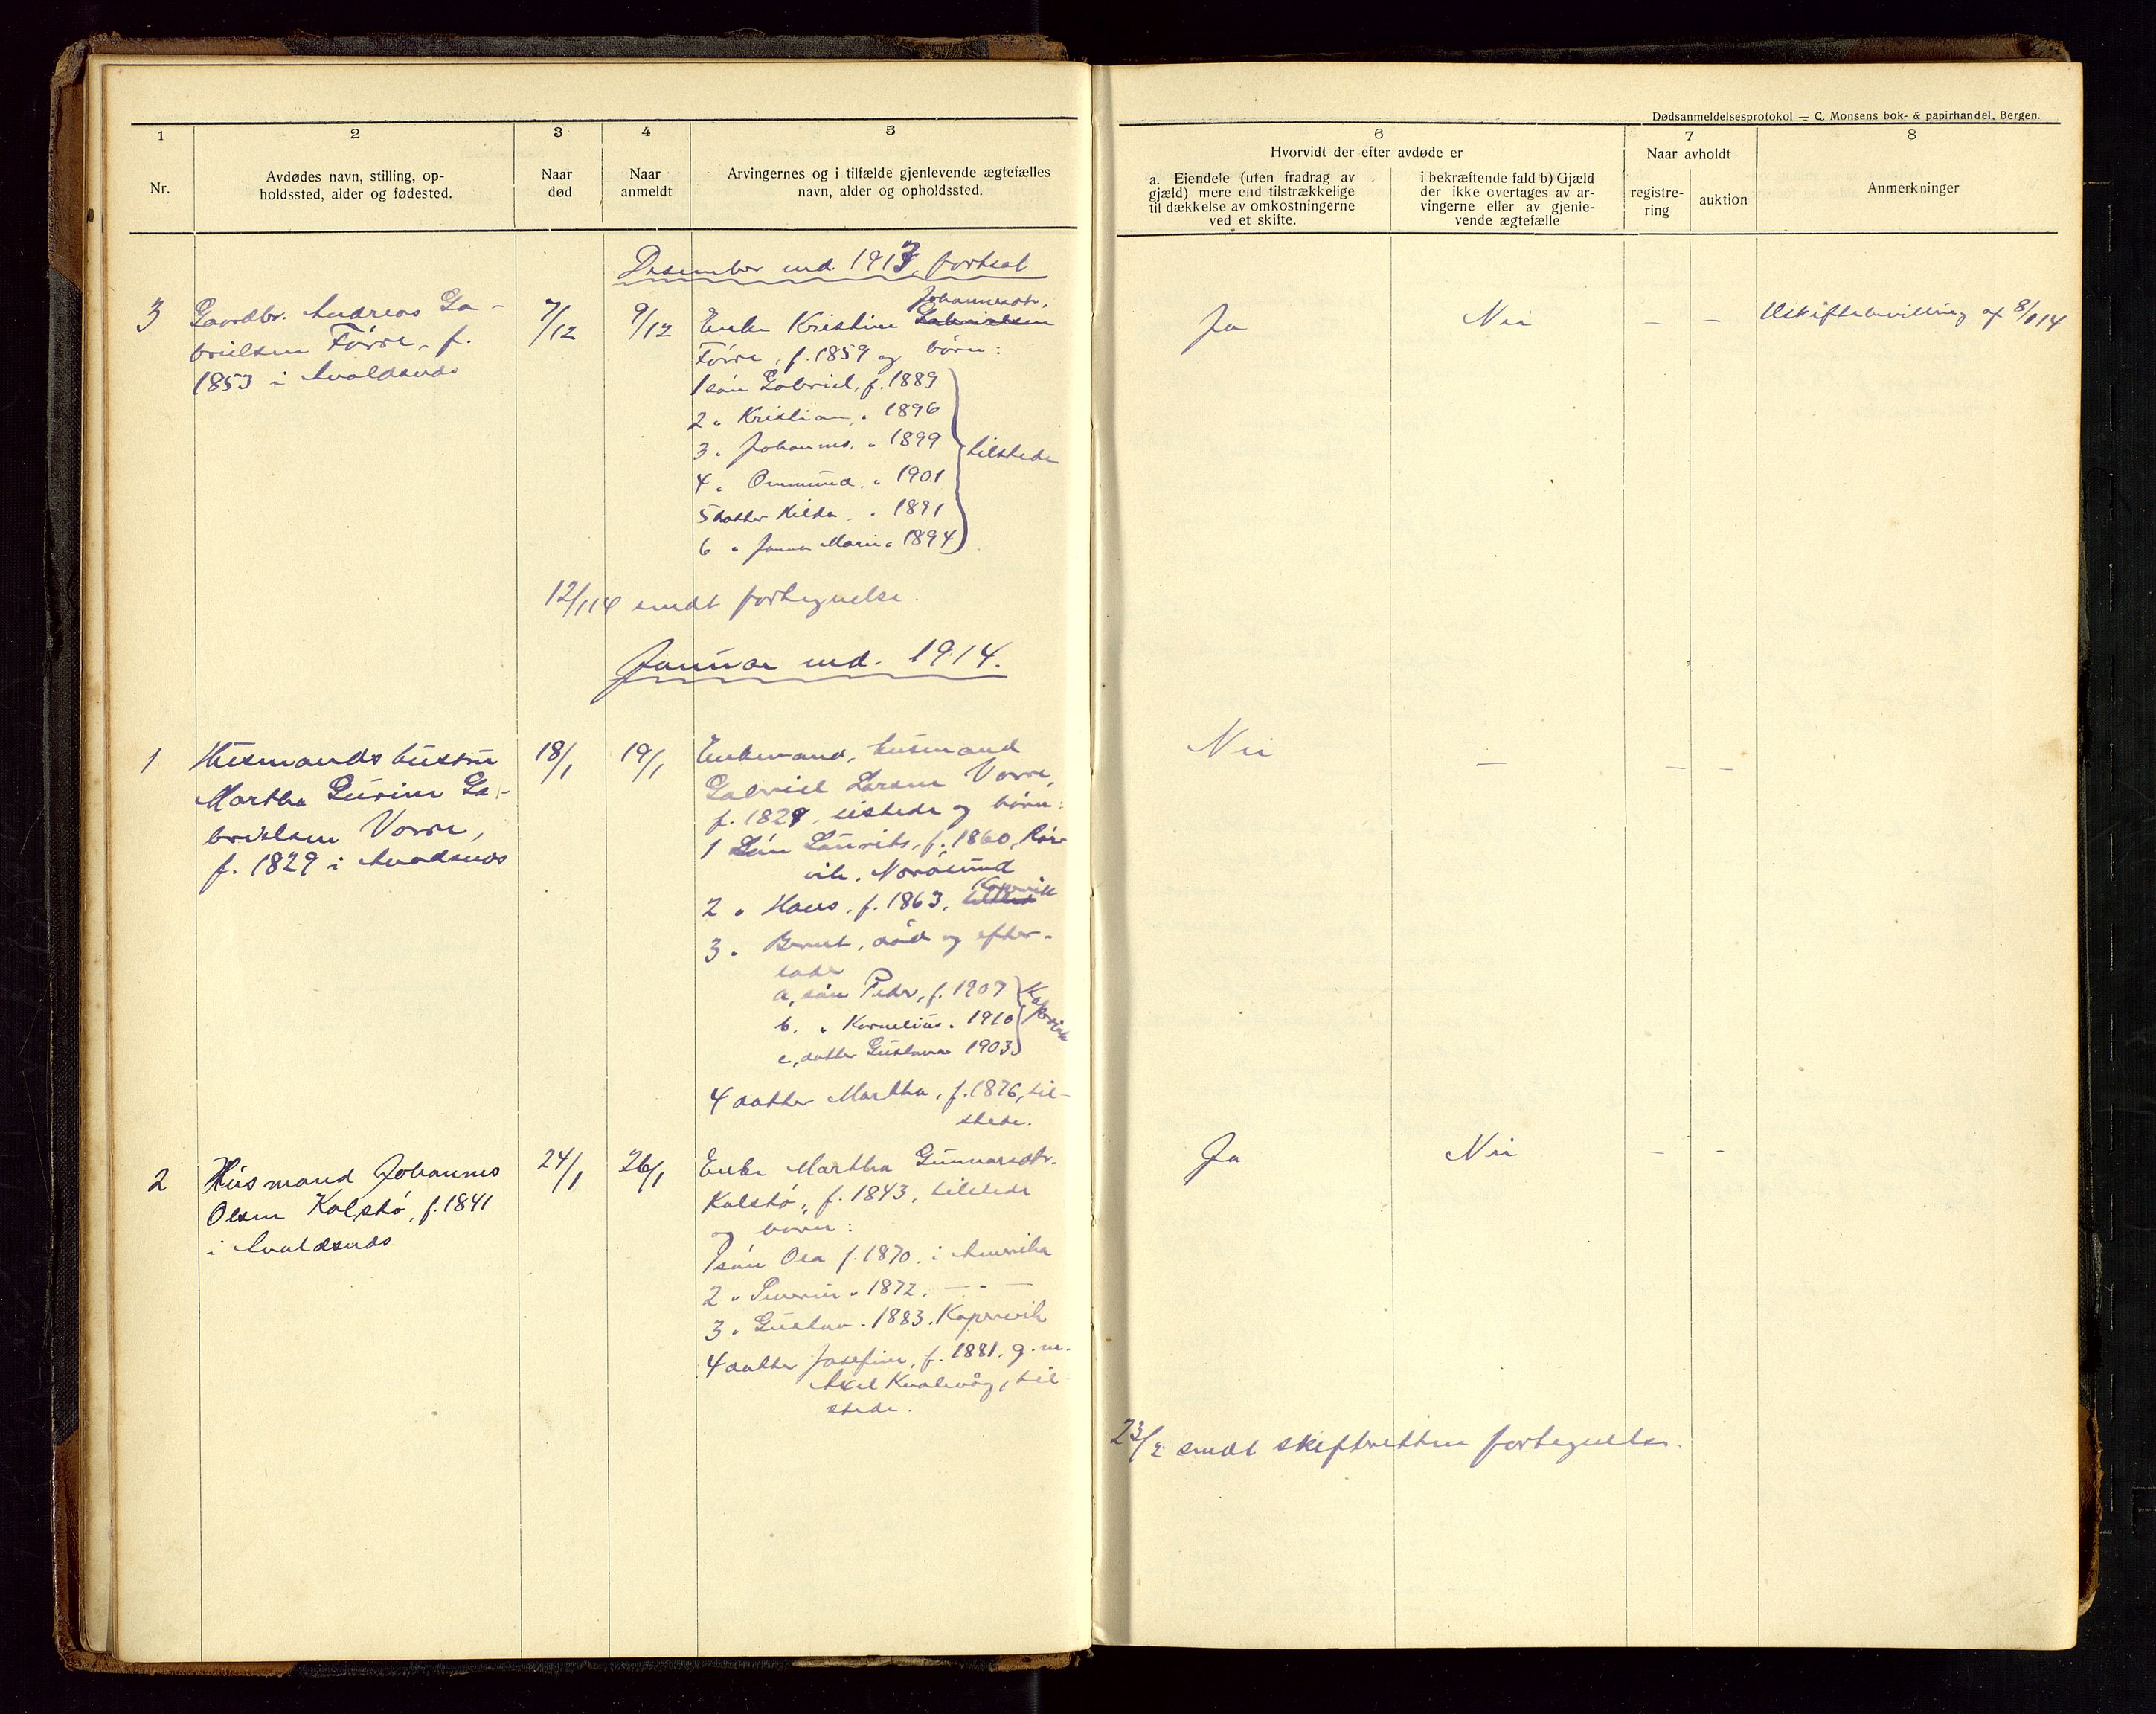 Dødsanmeldelsesprotokol — C. Monsens bok- & papirhandel, Bergen.
1
2
3
4
5
6
7
8
Nr.
Avdødes navn, stilling, op-
holdssted, alder og fødested.
Naar
død
Naar
anmeldt
Arvingernes og i tilfælde gjenlevende ægtefælles
navn, alder og opholdssted.
Hvorvidt der efter avdøde er
a. Eiendele (uten fradrag av
gjæld) mere end tilstrækkelige
til dækkelse av omkostningerne
ved et skifte.
i bekræftende fald b) Gjæld
der ikke overtages av ar-
vingerne eller av gjenle-
vende ægtefælle
Naar avholdt
registre-
ring
auktion
Anmerkninger
Desember md. 1913, fortsat
3
Gaardbr. Andreas Ga-
brielsen Førre, f.
1853 i Avaldsnes
7/12
9/12
Johannesdtr.
Enke Kristine Gabrielsen
Førre, f. 1859 og børn:
1 søn Gabriel, f. 1889
2 " Kristian, " 1896
3 " Johannes, " 1899
4 " Ommund, " 1901
5 datter Hilda, " 1891
6 " Janna Marie " 1894
tilstede
Ja
Nei
— —
Uskiftebevilling af 8/1 14
12/1 14 sendt fortegnelse.
Januar md. 1914.
1
Husmandshustru
Martha Gurine Ga-
brielsen Vorre,
f. 1829 i Avadsnes
18/1
19/1
Enkemand, husmand
Gabriel Larsen Vorre,
f. 1828, tilstede og børn:
1 Søn Laurits, f. 1860, Rør-
vik, Norøsund
Kopervik
2 " Hans, f. 1863,
3 " Bernt, død og efter-
lader
a, søn Peder, f. 1907
b, " Kornelius " 1910
c, datter Gustava 1903
Kopervik
4 datter Martha, f. 1876, til-
stede.
Nei
—
— —
2
Husmand Johannes
Olsen Kalstø, f. 1841
i Avaldsnes
24/1
26/1
Enke Martha Gunnarsdtr.
Kalstø, f. 1843, tilstede
og børn:
1 søn Ola f. 1870, i Amerika
2 " Severin " 1872, — " —
3 " Gustav " 1883, Kopervik
4 datter Josefine, f. 1881, g. m.
Axel Kvalevåg, til
stede.
Ja
Nei
— —
23/2 sendt skifteretten fortegnelse.